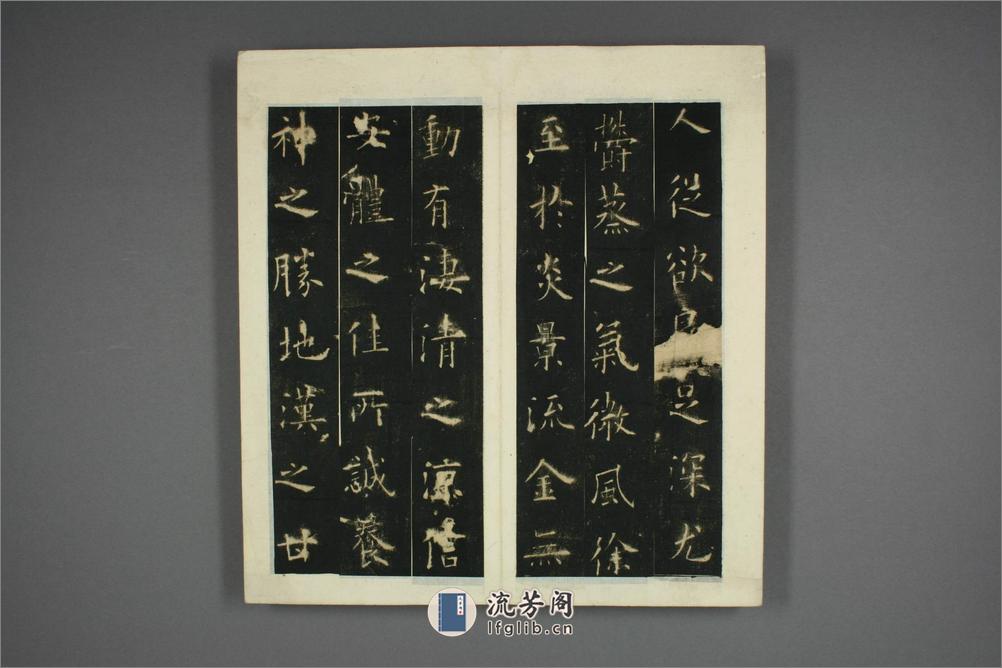 人從欲良足深尤
鬱蒸之氣微風徐
至於炎景流金無
動有淒清之涼信
安體之佳所誠養
神之勝地漢之甘
流芳阁
lfglib.cn